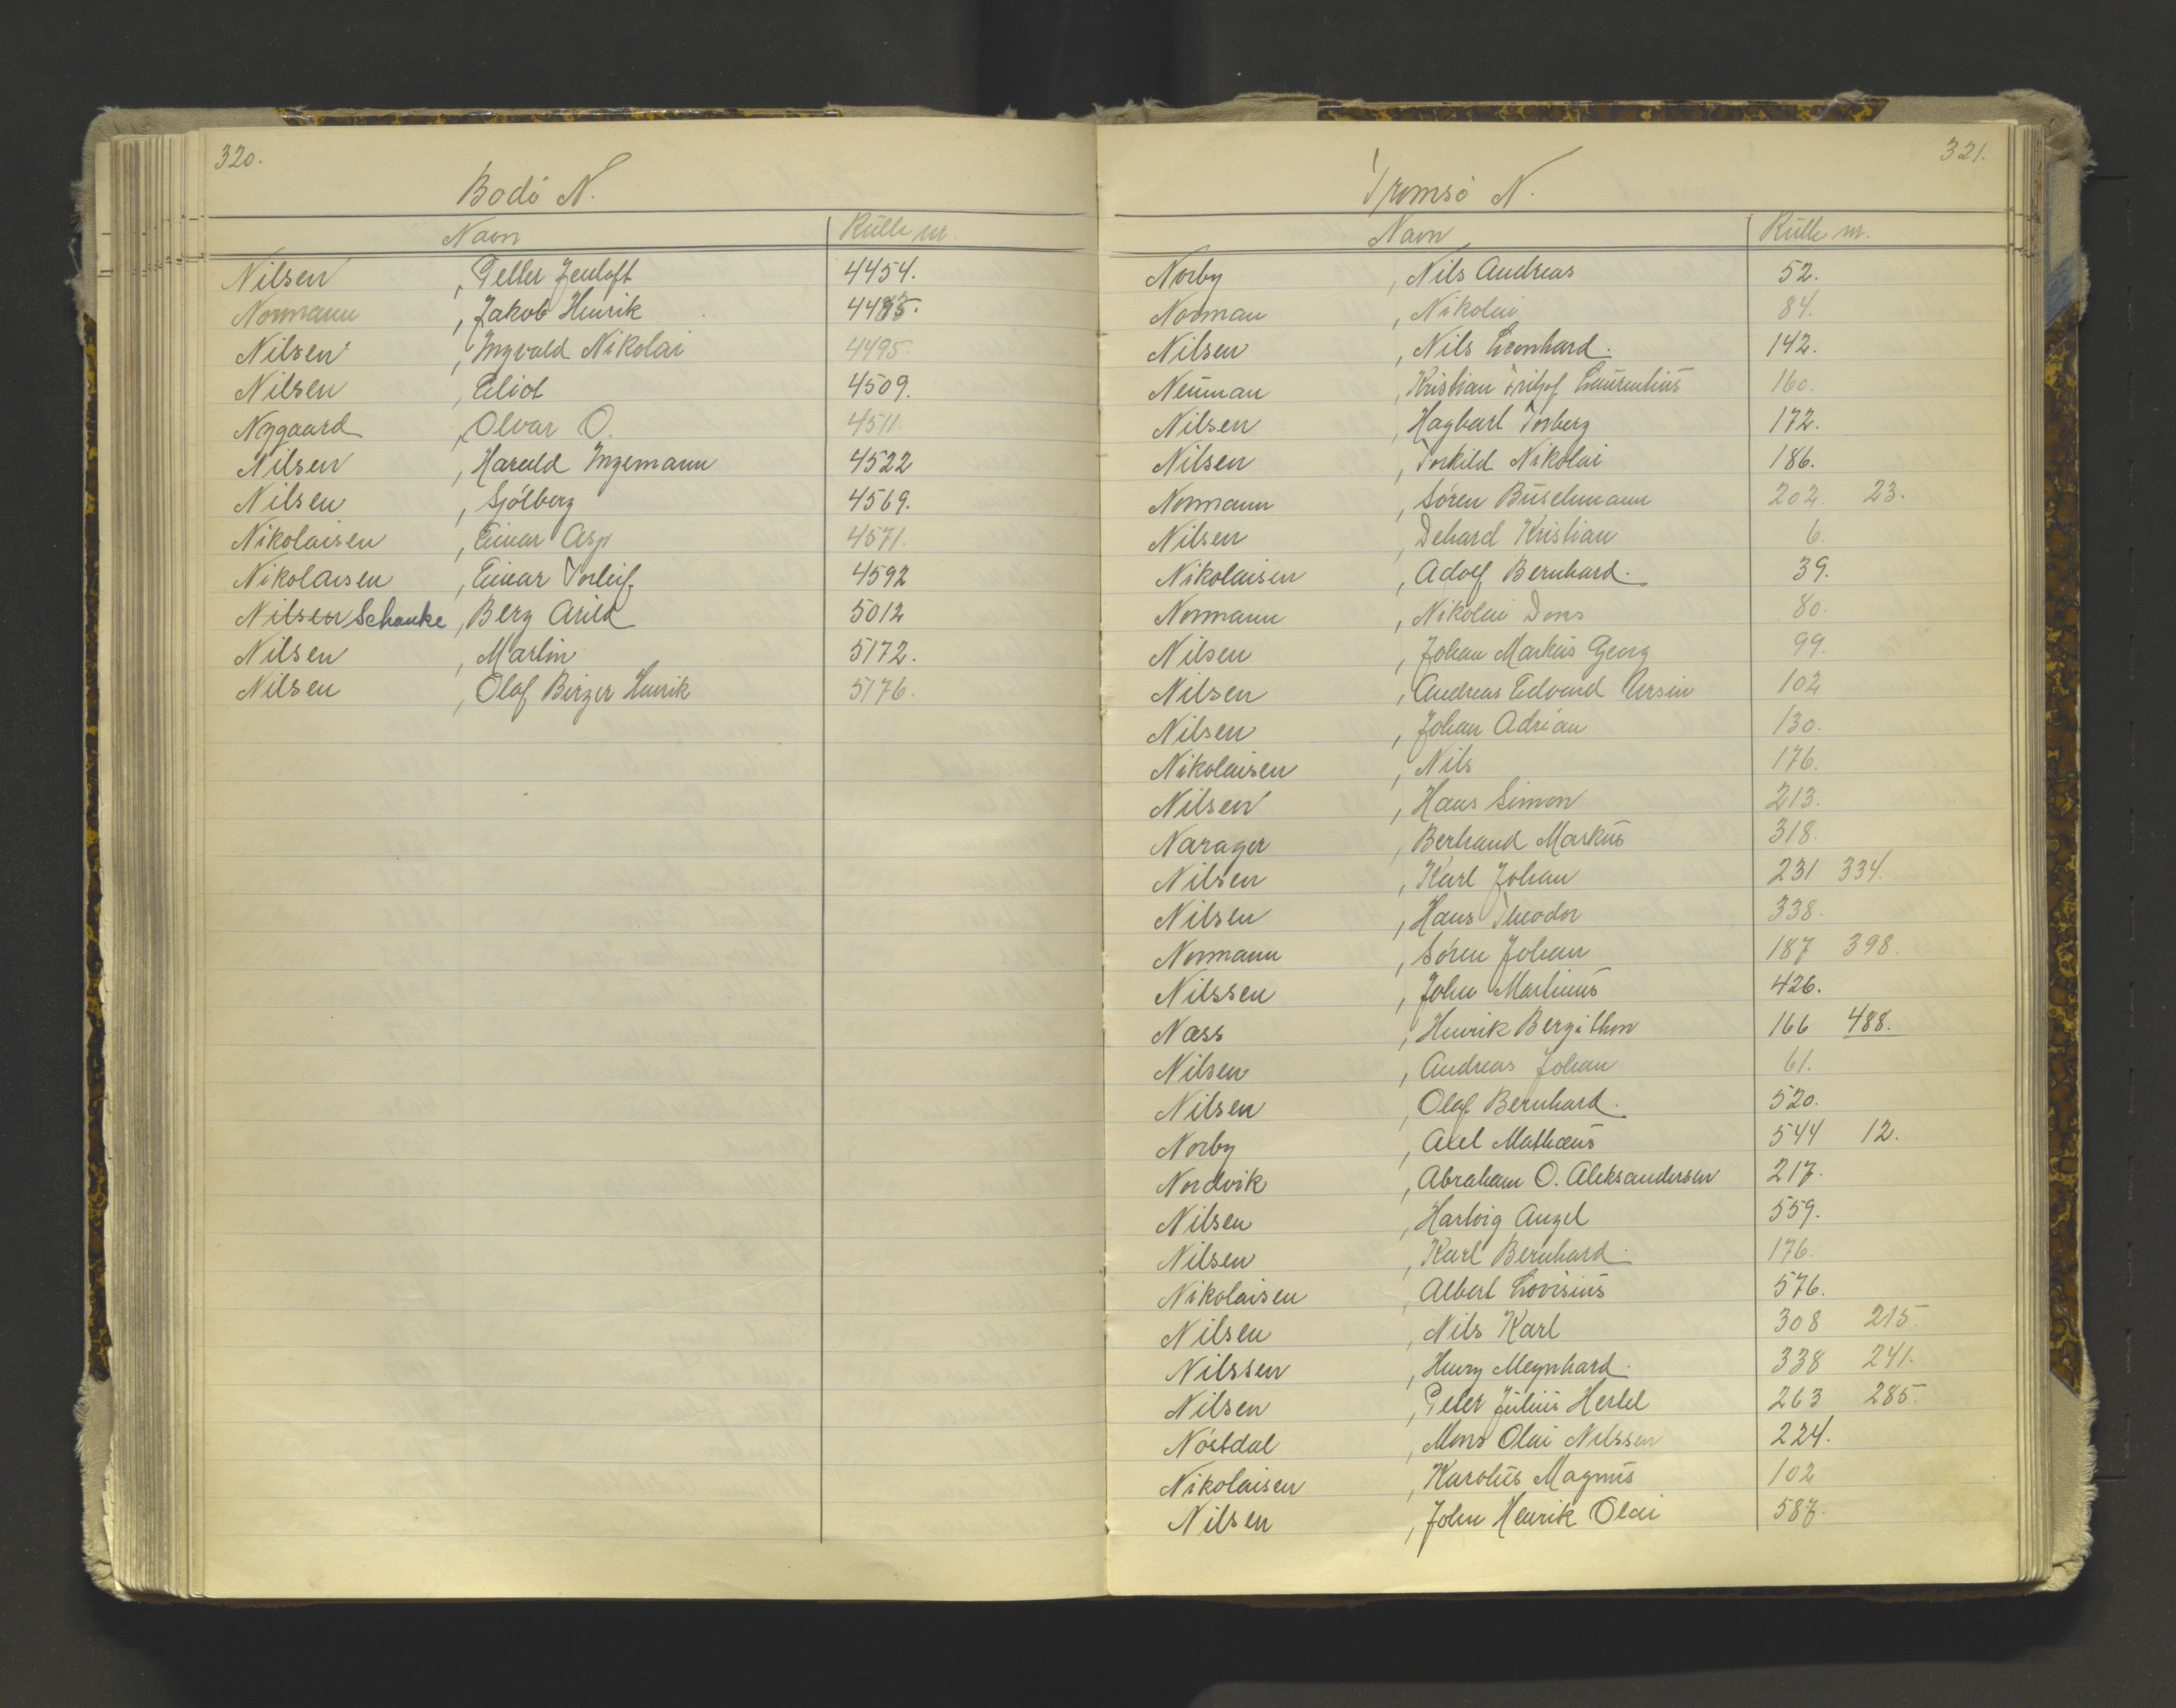 320.
Bodö N.
Navn Rulle nr.
Nilsen , Petter Jentoft 4454.
Normann , Jakob Henrik
Nilsen , Ingvald Nikolai 4495.
Nilsen , Eliot 4509.
Nygaard , Olvar O. 4511.
Nilsen , Harald Ingemann 4522
Nilsen , Sjölberg 4569.
Nikolaisen , Einar Asp 4571.
Nikolaisen , Einar Torleif 4592
Nilsen Schanke , Berg Arild 5012
Nilsen , Martin 5172.
Nilsen , Olaf Birger Henrik 5176.
321.
Tromsö N.
Navn Rulle nr.
Norby , Nils Andreas 52.
Norman , Nikolai 84.
Nilsen , Nils Leonhard. 142.
Neuman , Kristian Fritjof Laurentius 160.
Nilsen , Hagbart Torberg 172.
Nilsen , Torkild Nikolai 186.
Normann , Sören Buschmann 202. 23.
Nilsen , Dehard Kristian 6.
Nikolaisen , Adolf Bernhard. 39.
Normann , Nikolai Dons 80.
Nilsen , Johan Markus Georg 99.
Nilsen , Andreas Edvard Ursin 102
Nilsen , Johan Adrian 130.
Nikolaisen , Nils 176.
Nilsen , Hans Simon 213.
Narager , Bertrand Markus 318.
Nilsen , Karl Johan 231 334.
Nilsen , Hans Theodor 338.
Normann , Sören Johan 187 398.
Nilssen , John Martinus 426.
Næss , Henrik Bergithon 166 488.
Nilsen , Andreas Johan 61.
Nilsen , Olaf Bernhard. 520.
Norby , Axel Mathæus 544 12.
Nordvik , Abraham O. Aleksandersen 217.
Nilsen , Hartvig Angel 559.
Nilsen , Karl Bernhard. 176.
Nikolaisen , Albert Lovisius 576.
Nilsen , Nils Karl 308 215.
Nilssen , Henry Meynhard. 338 241.
Nilsen , Peter Julius Hertel 263 285.
Nöstdal , Mons Olai Nilssen 224.
Nikolaisen , Karolus Magnus 102
Nilsen , John Henrik Olai 587.